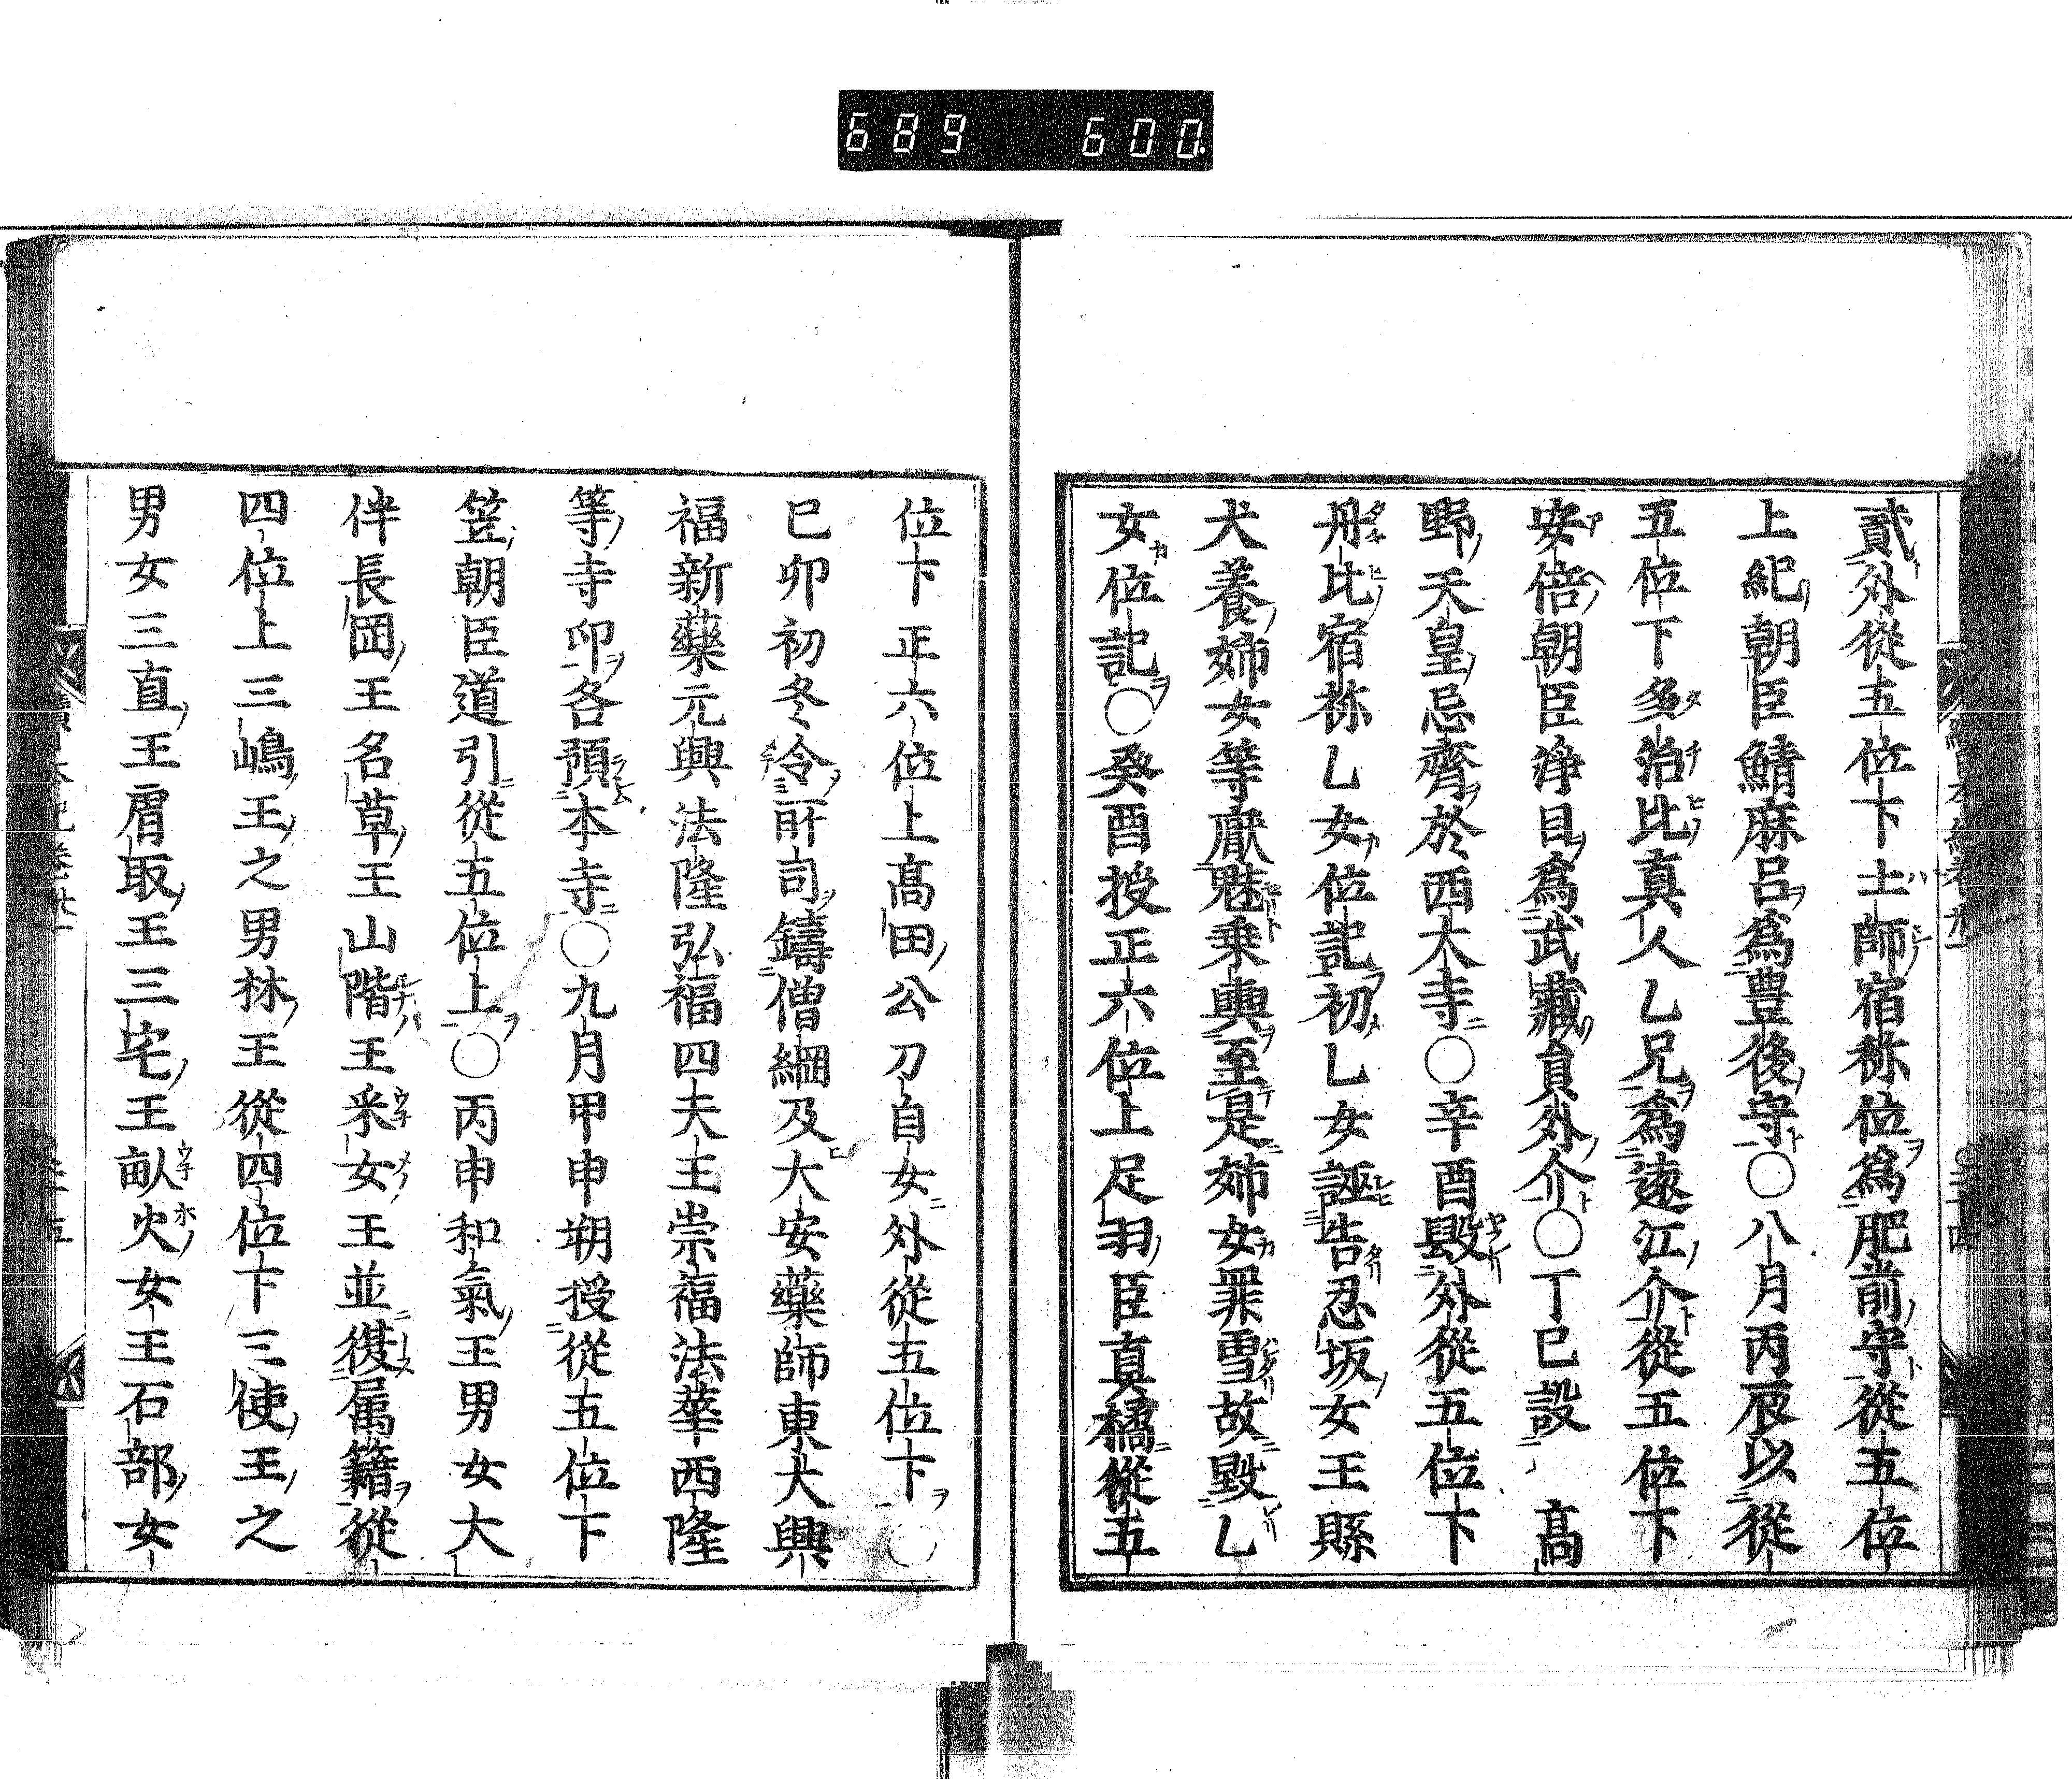 689 600.
貳外從五位下士師宿祢位爲肥前守從五位
上紀朝臣鯖麻呂爲豊後守○八月丙辰以從
五位下多治比真人乙兄爲遠江介從五位下
安倍朝臣淨目爲武藏員外介○丁巳設 高
野天皇忌齊於西大寺○辛酉毀外從五位下
丹比宿祢乙女位記初乙女誣告忍坂女王縣
犬養姉女等厭魅乗輿至是姉女罪雪故毀乙
女位記○癸酉授正六位上足羽臣真橘從五
位下正六位上高田公刀自女外從五位下○
己卯初冬令所司鑄僧綱及大安藥師東大興
福新藥元興法隆弘福四天王崇福法華西隆
等寺印各預本寺○九月甲申朔授從五位下
笠朝臣道引從五位上○丙申和氣王男女大
伴長岡王名草王山階王采女王並復属籍從
四位上三嶋王之男林王從四位下三使王之
男女三直王庸取王三宅王畒火女王石部女